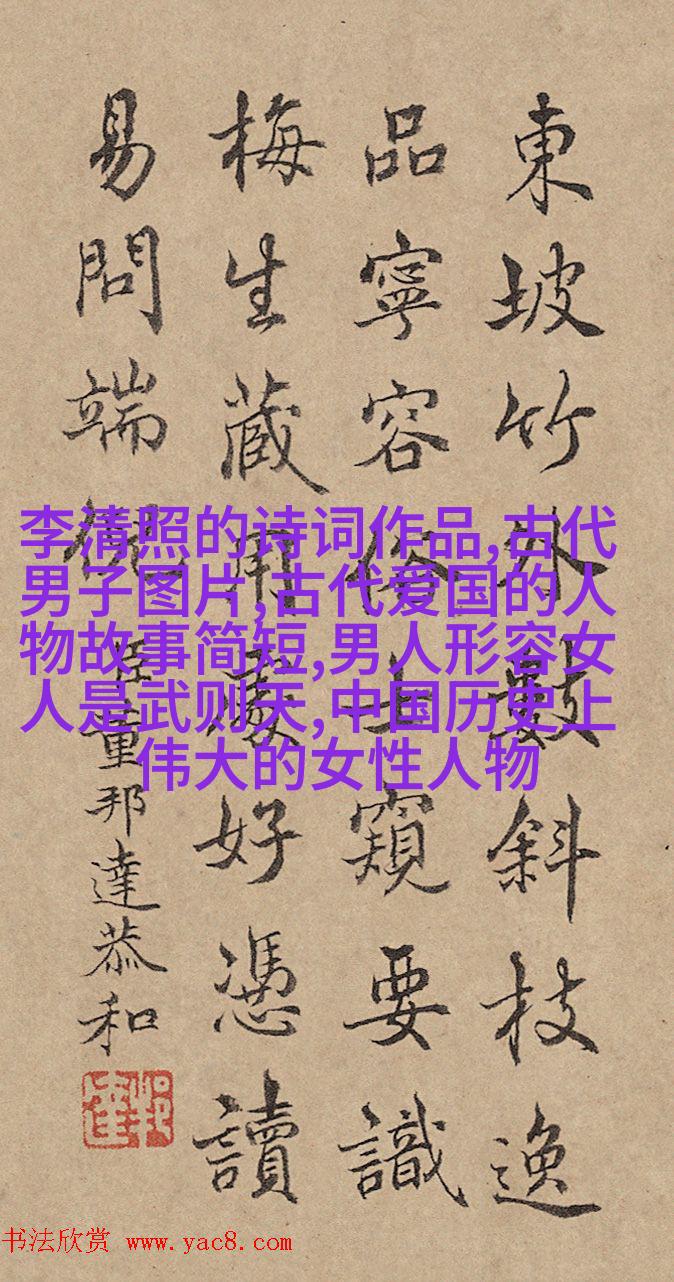 東坡竹外數斜枝逸
品寧容俗士窺要識
梅生藏用處好憑讀
易問端倪
臣董邦達恭和
李清照的诗词作品,古代
男子图片,古代爱国的人
物故事简短,男人形容女
人是武则天,中国历史上
伟大的女性人物
书法欣赏 www.yac8.com